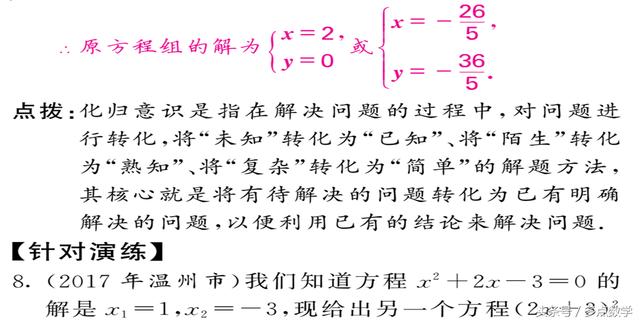 ∴原方程组的解为{x=2, y=0 或{x=-26/5, y=-36/5.
点拨:化归意识是指在解决问题的过程中,对问题进
行转化,将“未知”转化为“已知”、将“陌生”转化
为“熟知”、将“复杂”转化为“简单”的解题方法,
其核心就是将有待解决的问题转化为已有明确
解决的问题,以便利用已有的结论来解决问题.
【针对演练】
8.(2017年温州市)我们知道方程 x²+2x-3=0 的
解是 x₁=1,x₂=-3,现给出另一个方程(2x+3)²
头条号/多点数学